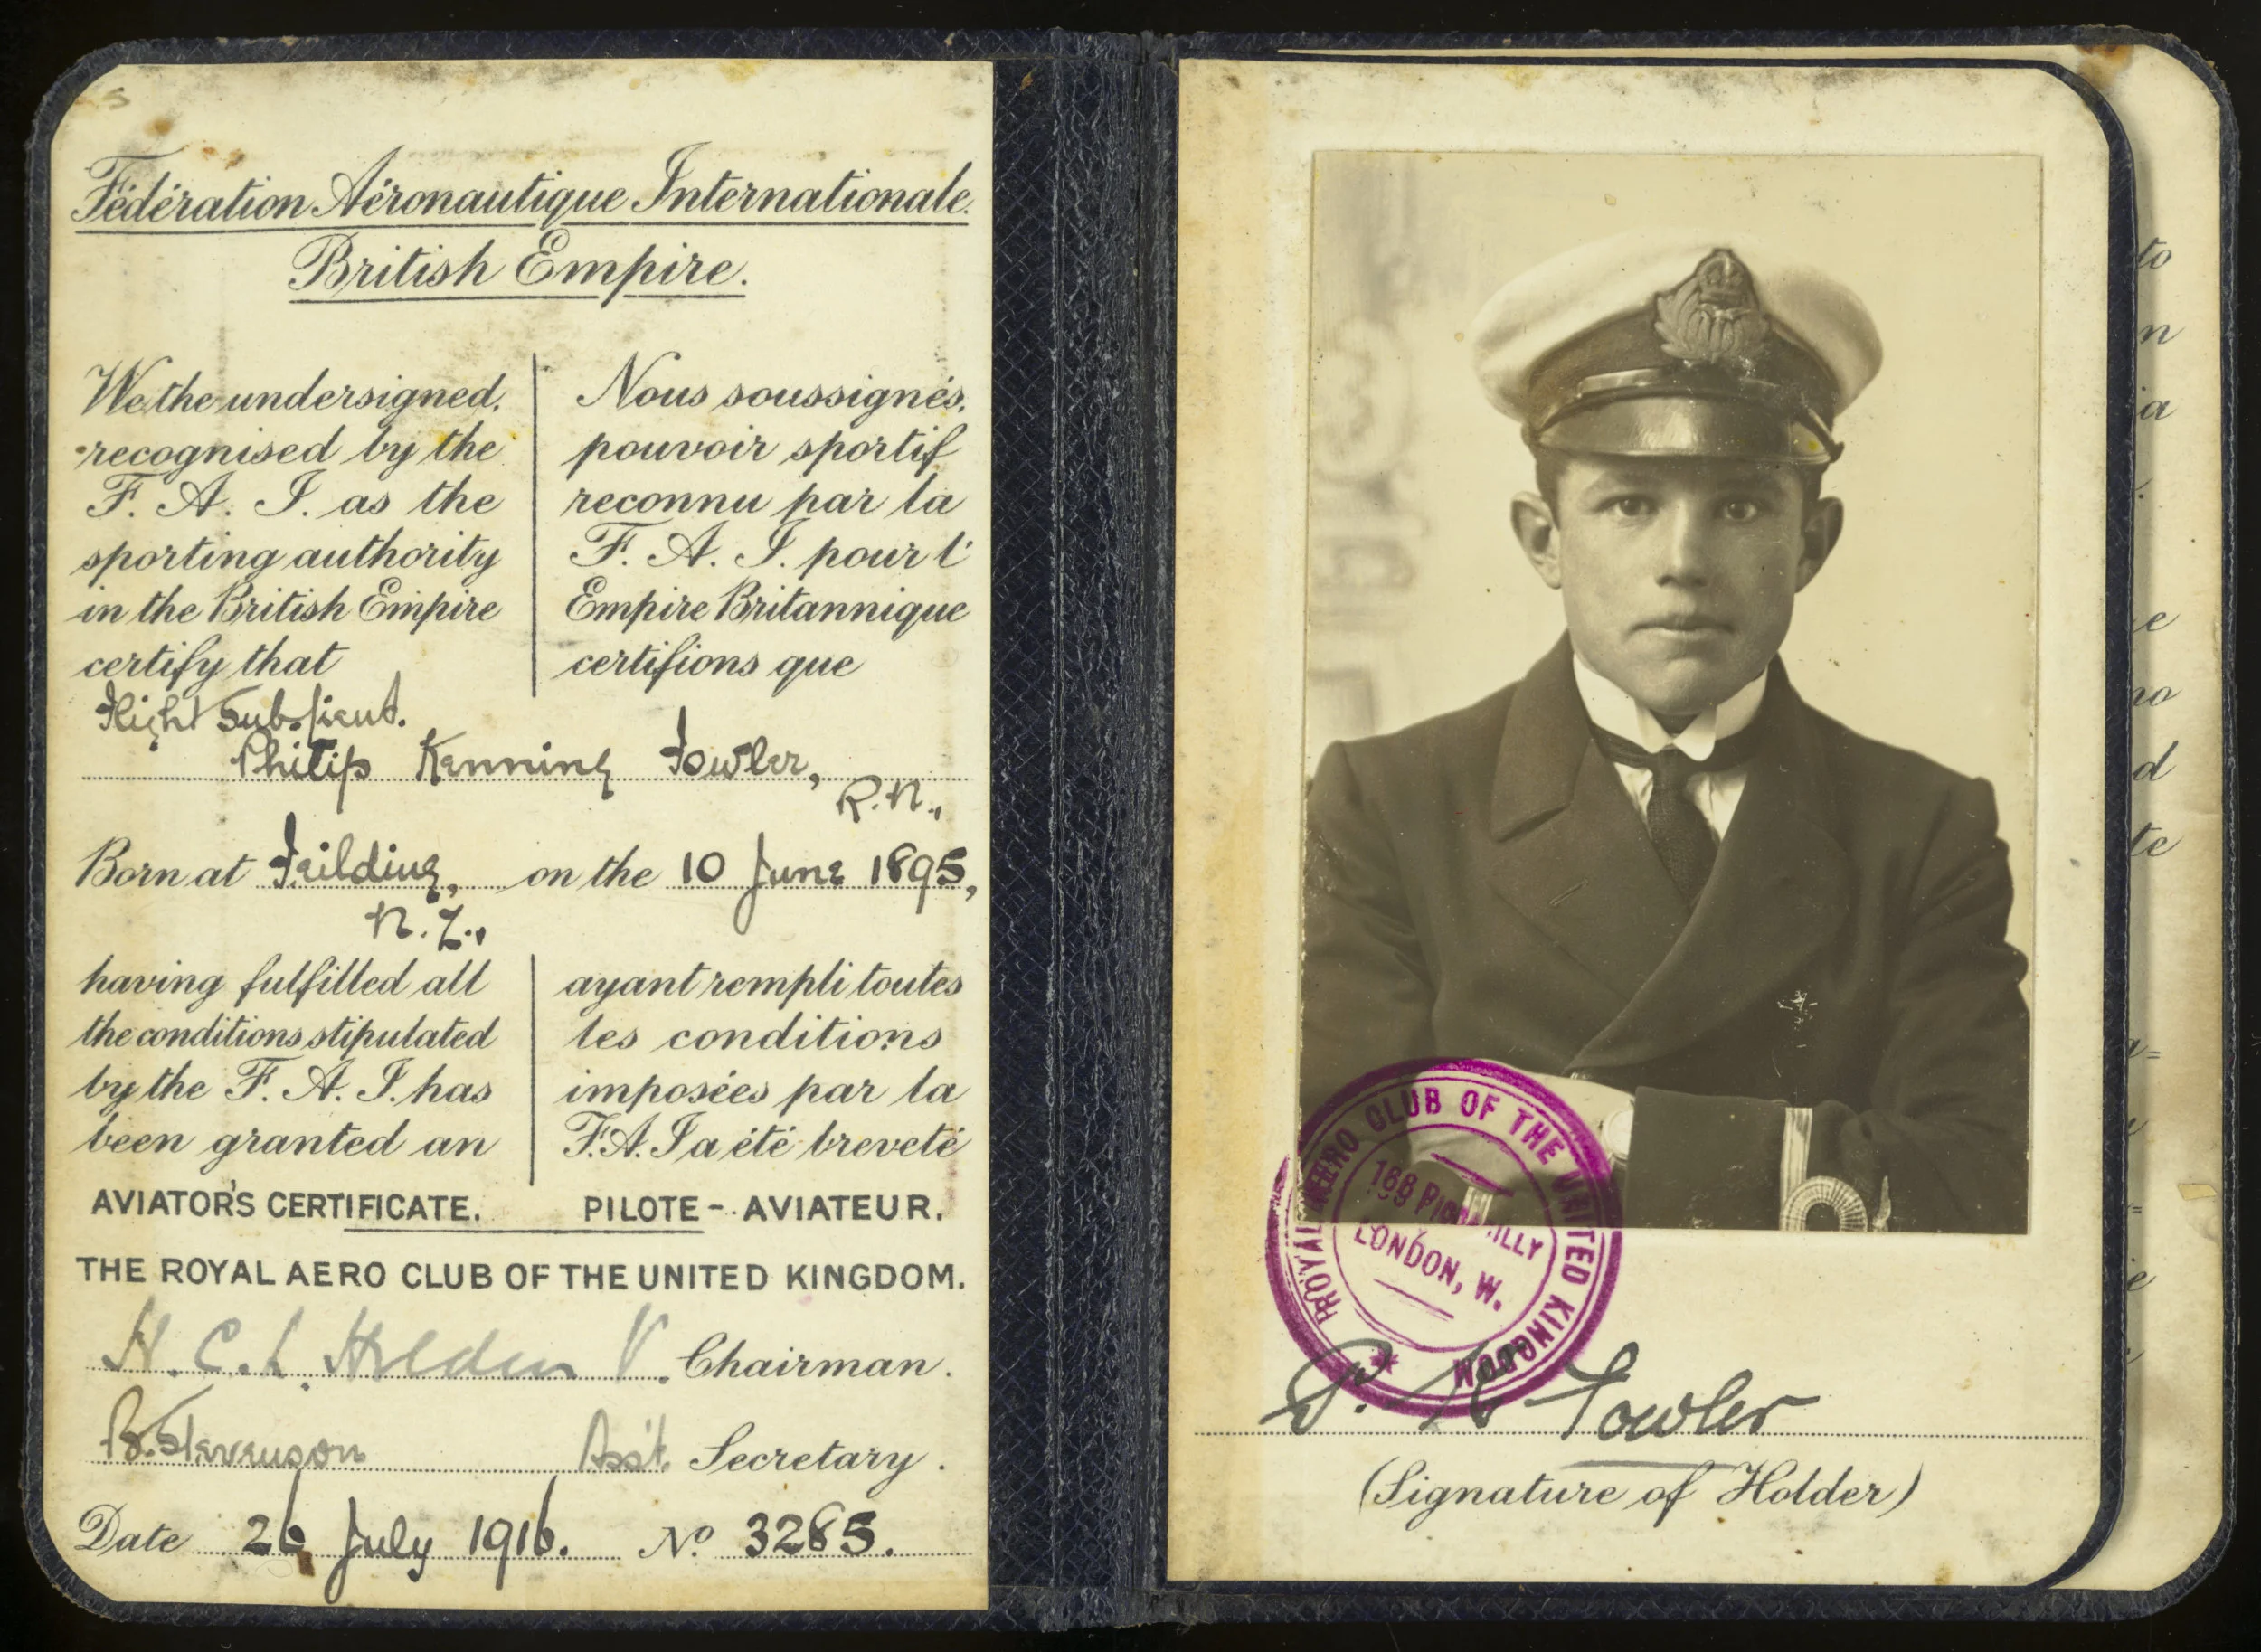 Fédération Aéronautique Internationale.
British Empire.
We the undersigned,
recognised by the
F. A. I. as the
sporting authority
in the British Empire
certify that
Nous soussignés,
pouvoir sportif
reconnu par la
F. A. I. pour l'
Empire Britannique
certifions que
Flight Sub. Lieut.
Philip Kenning Fowler,
R.N.,
Born at Feilding, on the 10 June 1895,
N.Z.,
having fulfilled all
the conditions stipulated
by the F. A. I. has
been granted an
ayant rempli toutes
les conditions
imposées par la
F.A.I a été breveté
AVIATOR'S CERTIFICATE. PILOTE-AVIATEUR.
THE ROYAL AERO CLUB OF THE UNITED KINGDOM.
H. C. L. Holden V. Chairman.
B. Stevenson Asst. Secretary.
Date 26 July 1916. No 3285.
ROYAL AERO CLUB OF THE UNITED KINGDOM
166 PICCADILLY
LONDON, W.
P. K Fowler
(Signature of Holder)
to
n
a
e
no
d
te